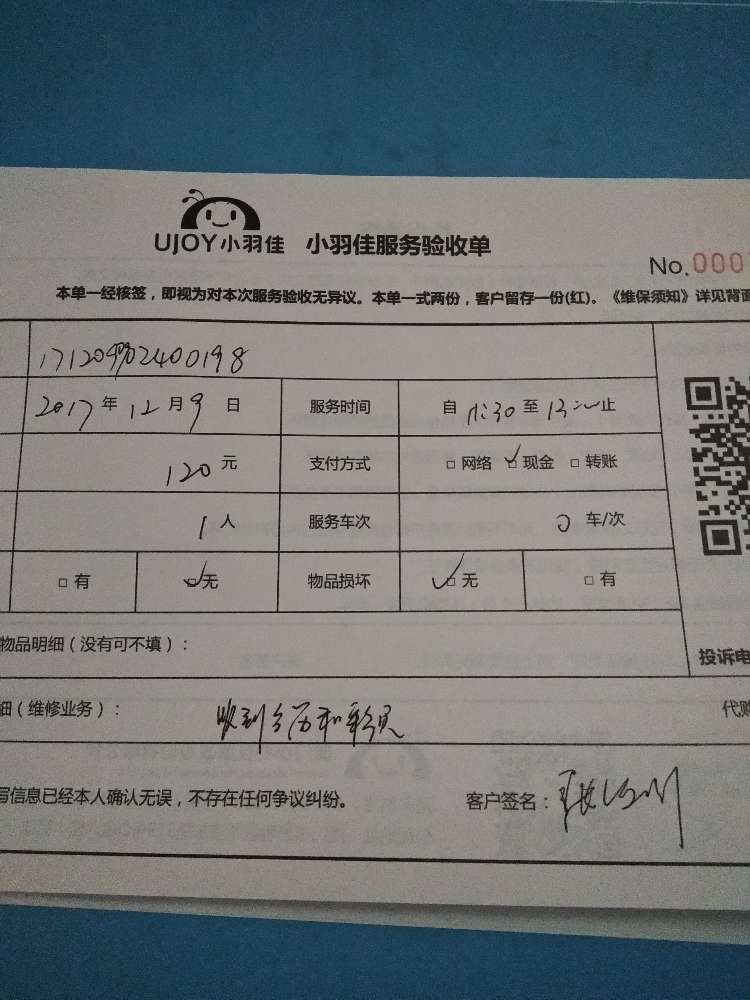 UJOY小羽佳 小羽佳服务验收单
No.000
本单一经核签，即视为对本次服务验收无异议。本单一式两份，客户留存一份(红)。《维保须知》详见背面
2017年12月9日 服务时间 自 至 止
120元 支付方式 □网络 □现金 □转账
1人 服务车次 0车/次
□有 □无 物品损坏 □无 □有
物品明细（没有可不填）：
投诉电
细（维修业务）： 收到台历和
代购
写信息已经本人确认无误，不存在任何争议纠纷。 客户签名：